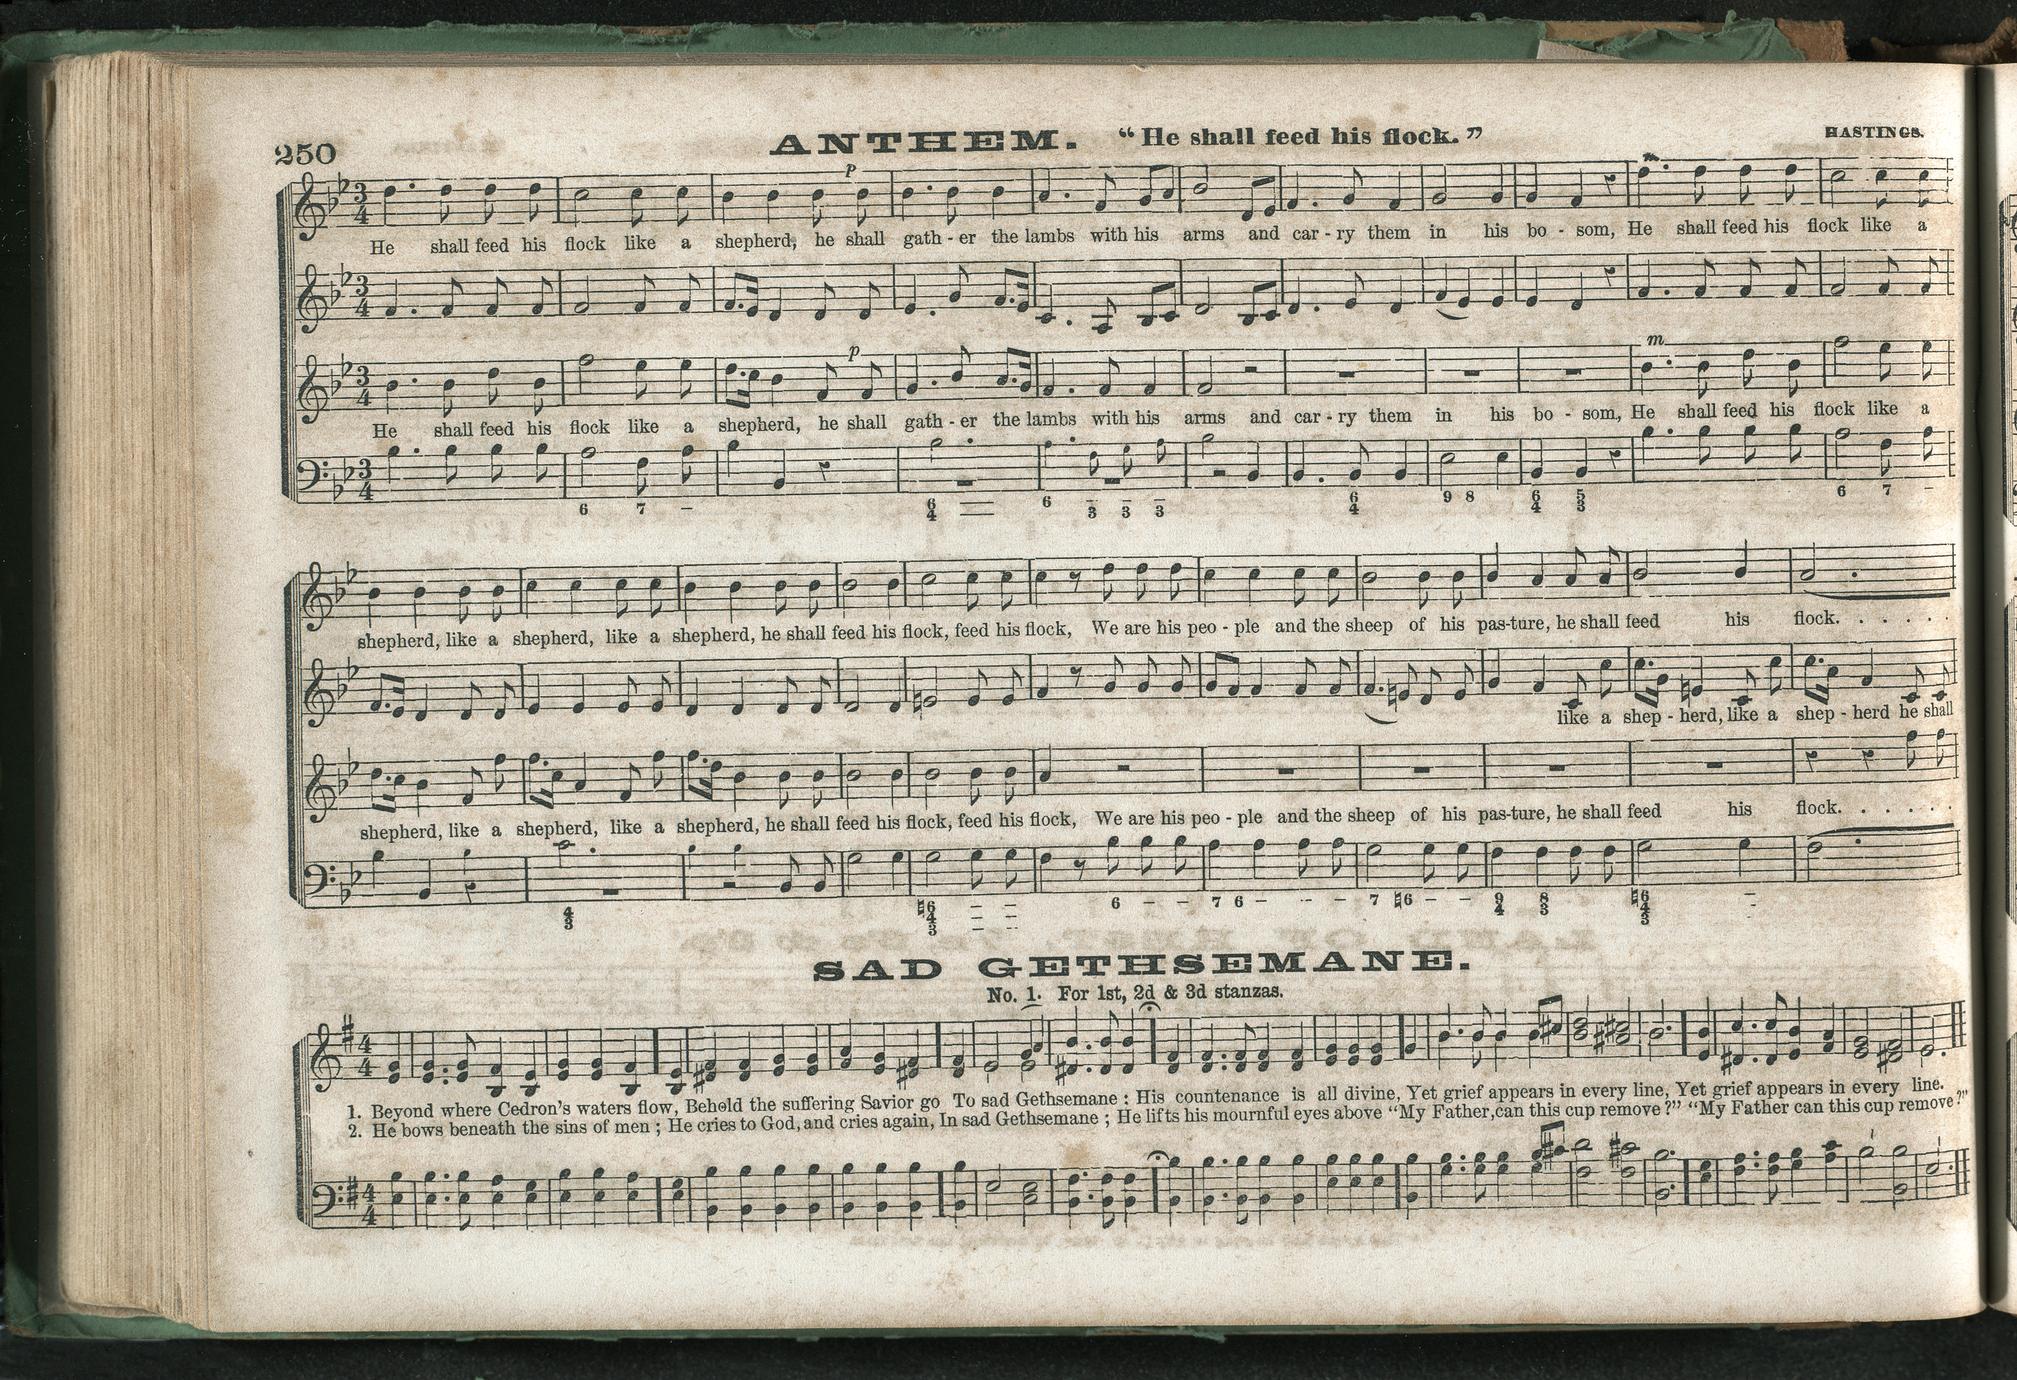 250
ANTHEM. “He shall feed his flock.”
HASTINGS.
p
m
He shall feed his flock like a shepherd, he shall gath - er the lambs with his arms and car - ry them in his bo - som, He shall feed his flock like a
p
m
He shall feed his flock like a shepherd, he shall gath - er the lambs with his arms and car - ry them in his bo - som, He shall feed his flock like a
6 7 – 6 4 6 3 3 3 6 4 9 8 6 4 5 3 6 7 –
shepherd, like a shepherd, like a shepherd, he shall feed his flock, feed his flock, We are his peo - ple and the sheep of his pas-ture, he shall feed his flock. . . . . .
like a shep - herd, like a shep - herd he shall
shepherd, like a shepherd, like a shepherd, he shall feed his flock, feed his flock, We are his peo - ple and the sheep of his pas-ture, he shall feed his flock. . . . . .
4 3 ♮6 4 3 6 – – 7 6 – – – 7 ♮6 – – 9 4 8 3 ♮6 4 3
SAD GETHSEMANE.
No. 1. For 1st, 2d & 3d stanzas.
1. Beyond where Cedron's waters flow, Behold the suffering Savior go To sad Gethsemane : His countenance is all divine, Yet grief appears in every line, Yet grief appears in every line.
2. He bows beneath the sins of men ; He cries to God, and cries again, In sad Gethsemane ; He lifts his mournful eyes above “My Father, can this cup remove ?” “My Father can this cup remove ?”